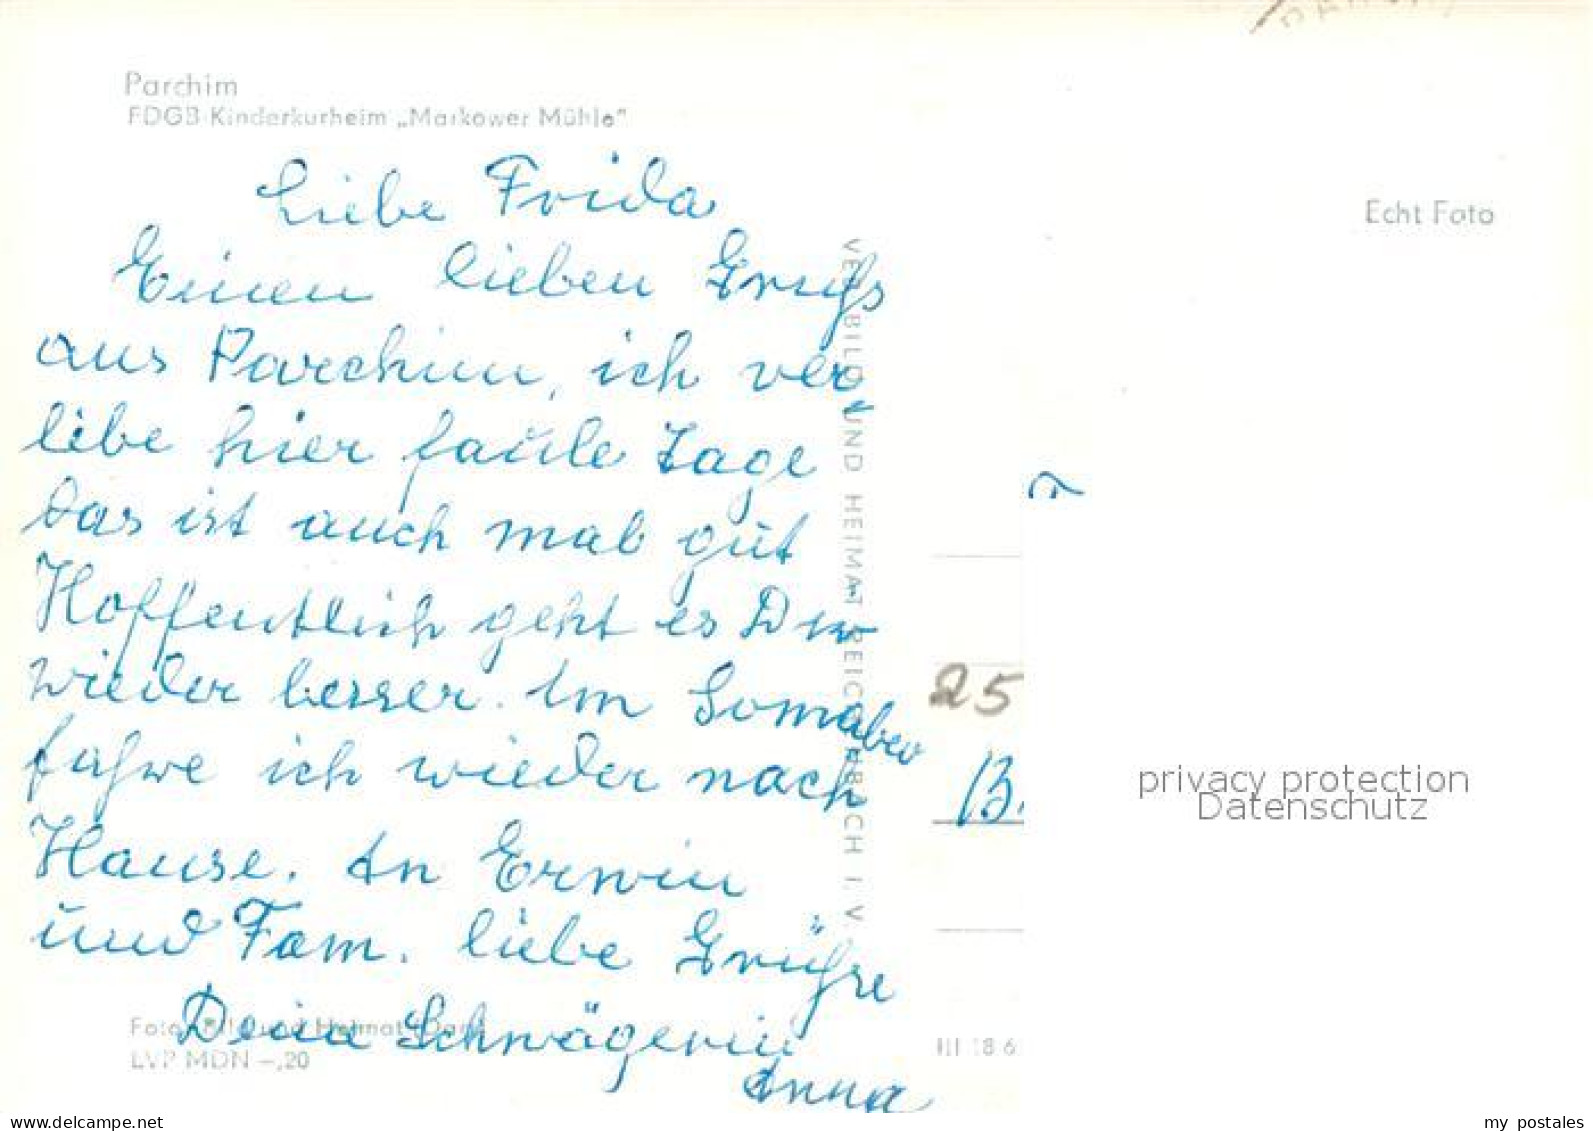 Parchim
FDGB-Kinderkurheim „Markower Mühle"
Liebe Frida
Einen lieben Gruß
aus Parchim, ich ver
lebe hier faule Tage
das ist auch mal gut
Hoffentlich geht es Dir
wieder besser. Im
fahre ich wieder nach
Hause. An Erwin
und Fam. liebe Grüße
Deine Schwägerin
Anna
Foto: Bild und Heimat
LVP MDN -,20
VEB BILD UND HEIMAT REICHENBACH I. V.
Echt Foto
25
B.
III 18 6
privacy protection
Datenschutz
delcampe.net
my_postales